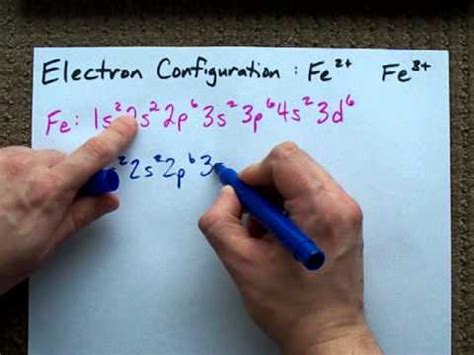 Electron Configuration : Fe²⁺ Fe³⁺
Fe: 1s² 2s² 2p⁶ 3s² 3p⁶ 4s² 3d⁶
s² 2s² 2p⁶ 3s